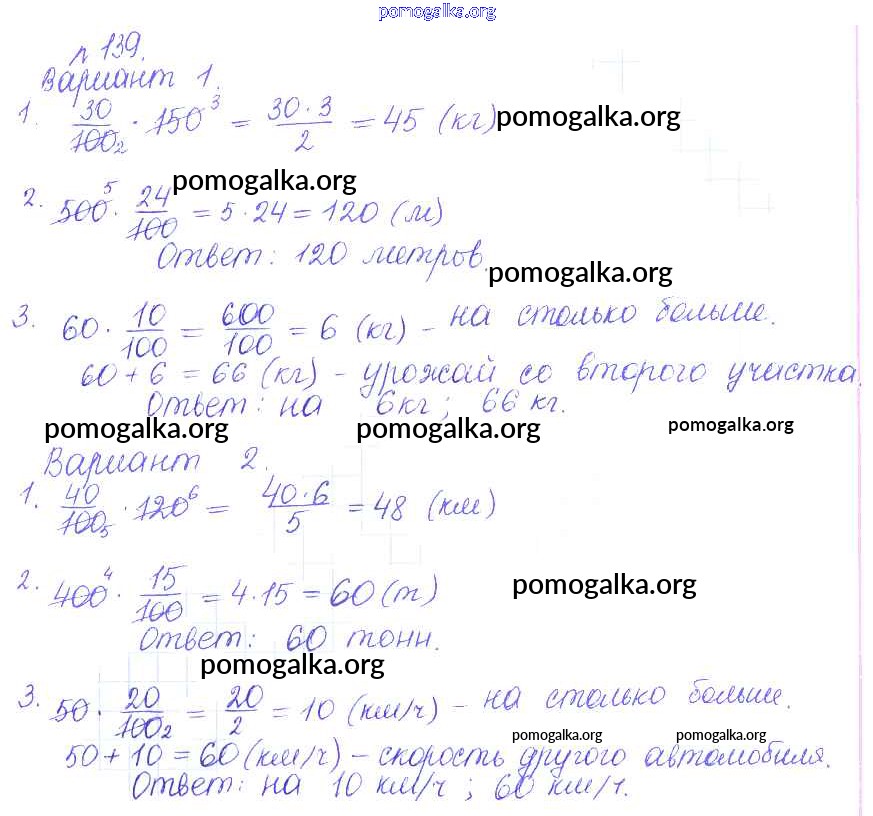 pomogalka.org
п 139.
Вариант 1.
1. 30/100₂ · 150³ = 30·3/2 = 45 (кг) pomogalka.org
pomogalka.org
2. 500⁵ · 24/100 = 5·24 = 120 (м)
Ответ: 120 метров.
pomogalka.org
3. 60 · 10/100 = 600/100 = 6 (кг) – на столько больше.
60 + 6 = 66 (кг) – урожай со второго участка.
Ответ: на 6 кг; 66 кг.
pomogalka.org pomogalka.org pomogalka.org
Вариант 2.
1. 40/100₅ · 120⁶ = 40·6/5 = 48 (км)
2. 400⁴ · 15/100 = 4·15 = 60 (т) pomogalka.org
Ответ: 60 тонн.
pomogalka.org
3. 50 · 20/100₂ = 20/2 = 10 (км/ч) – на столько больше.
pomogalka.org pomogalka.org
50 + 10 = 60 (км/ч) – скорость другого автомобиля.
Ответ: на 10 км/ч; 60 км/ч.